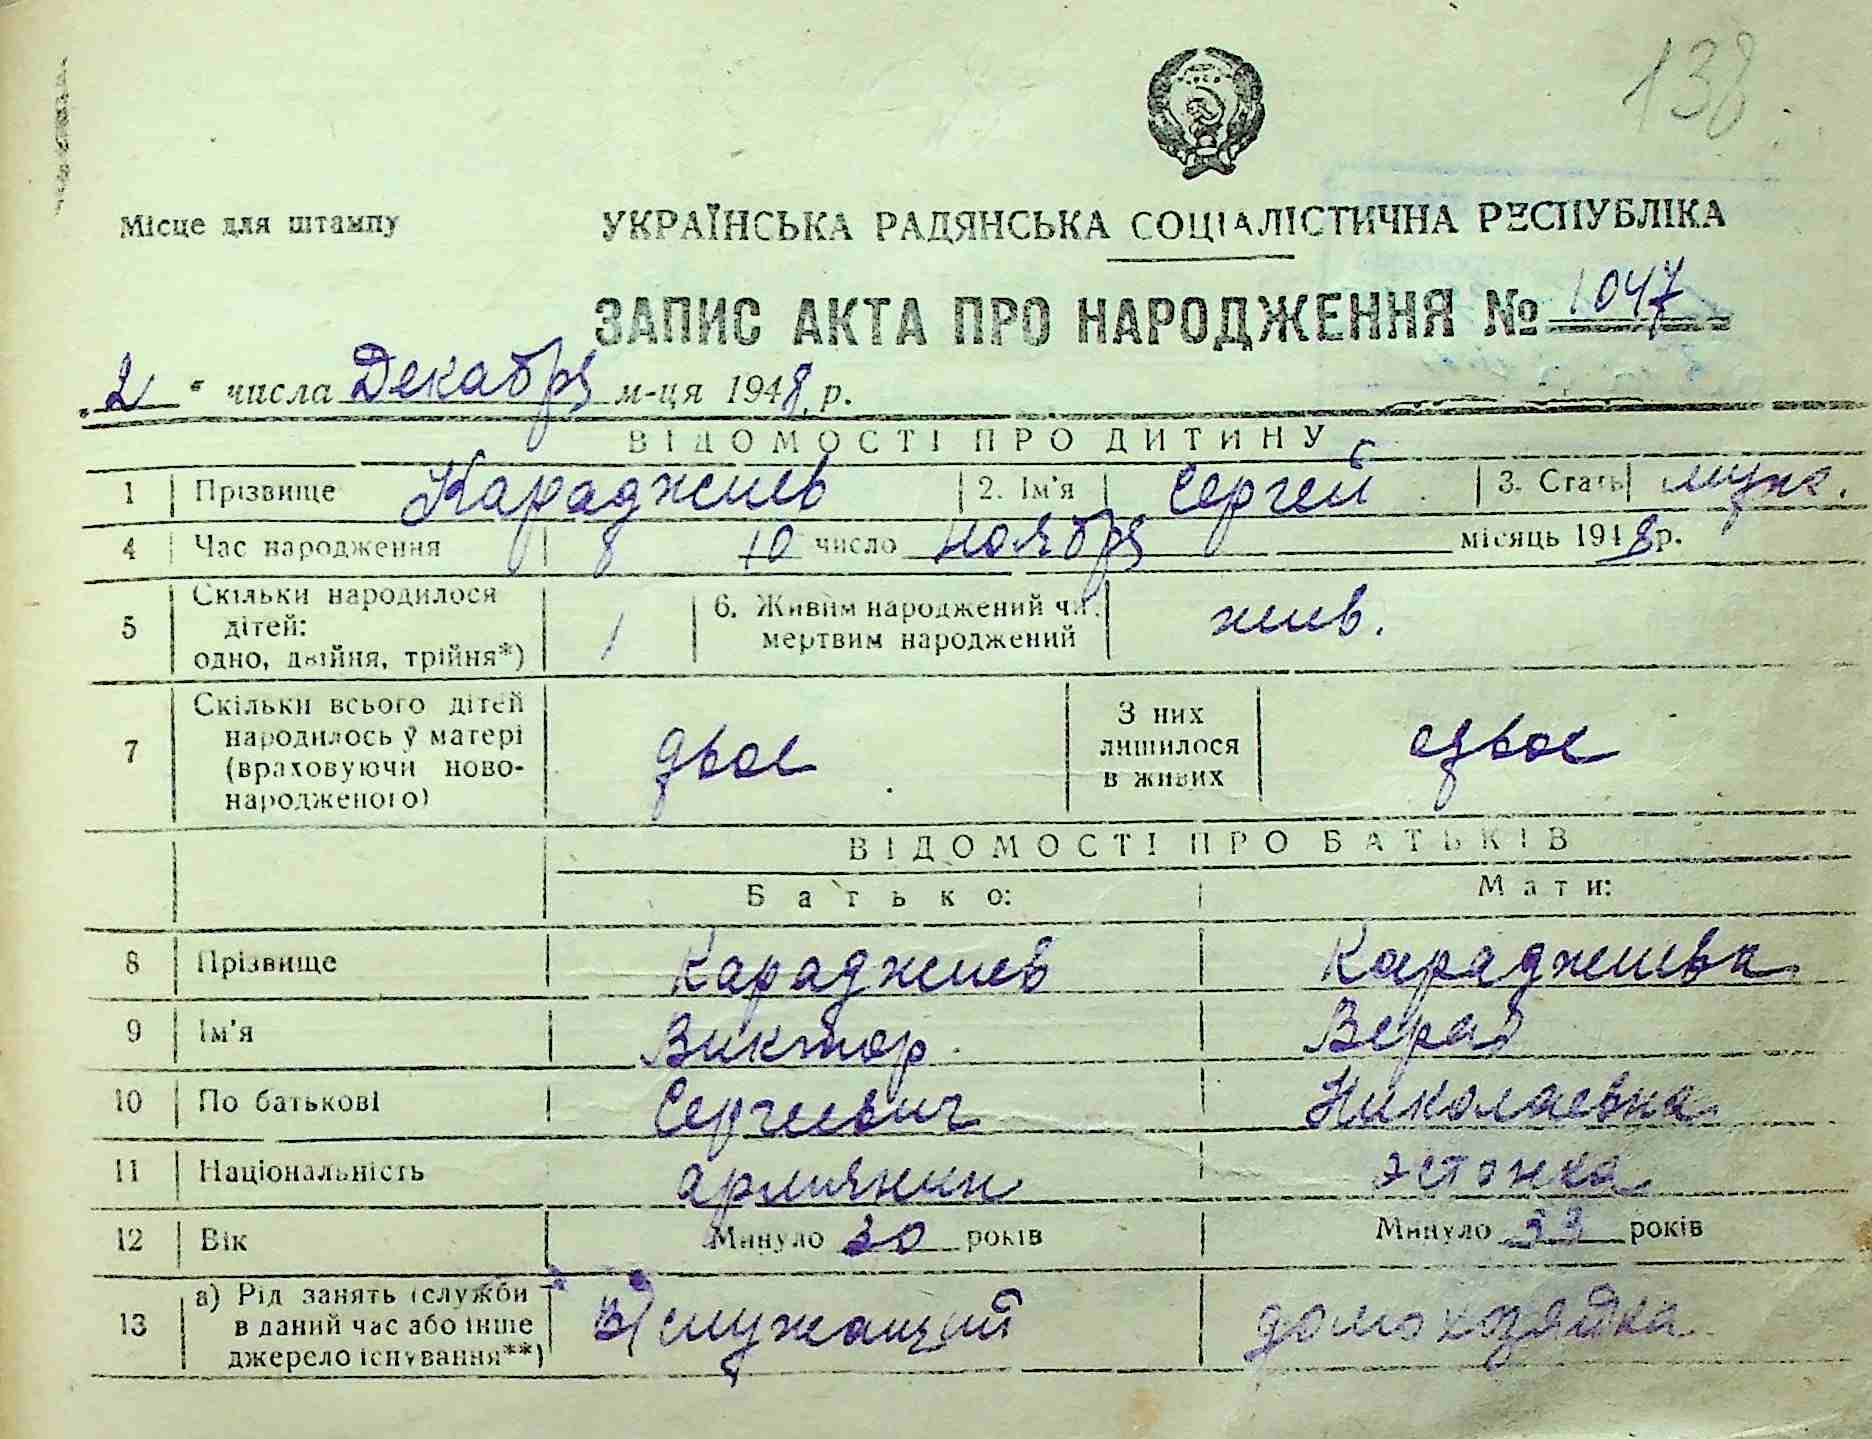 138
Місце для штампу
УКРАЇНСЬКА РАДЯНСЬКА СОЦІАЛІСТИЧНА РЕСПУБЛІКА
ЗАПИС АКТА ПРО НАРОДЖЕННЯ № 1047
„2“ числа Декабря м-ця 1948 р.
ВІДОМОСТІ ПРО ДИТИНУ
1 Прізвище Караджиев 2. Ім'я Сергей 3. Стать муж.
4 Час народження 10 число ноября місяць 1948 р.
5 Скільки народилося дітей: одно, двійня, трійня*) 1 6. Живим народжений чи мертвим народжений жив.
7 Скільки всього дітей народилось у матері (враховуючи новонародженого) двое З них лишилося в живих двое
ВІДОМОСТІ ПРО БАТЬКІВ
Батько: Мати:
8 Прізвище Караджиев Караджиева
9 Ім'я Виктор Вера
10 По батькові Сергеевич Николаевна
11 Національність армянин эстонка
12 Вік Минуло 30 років Минуло років
13 а) Рід занять (служби в даний час або інше джерело існування**) в/служащий домохозяйка